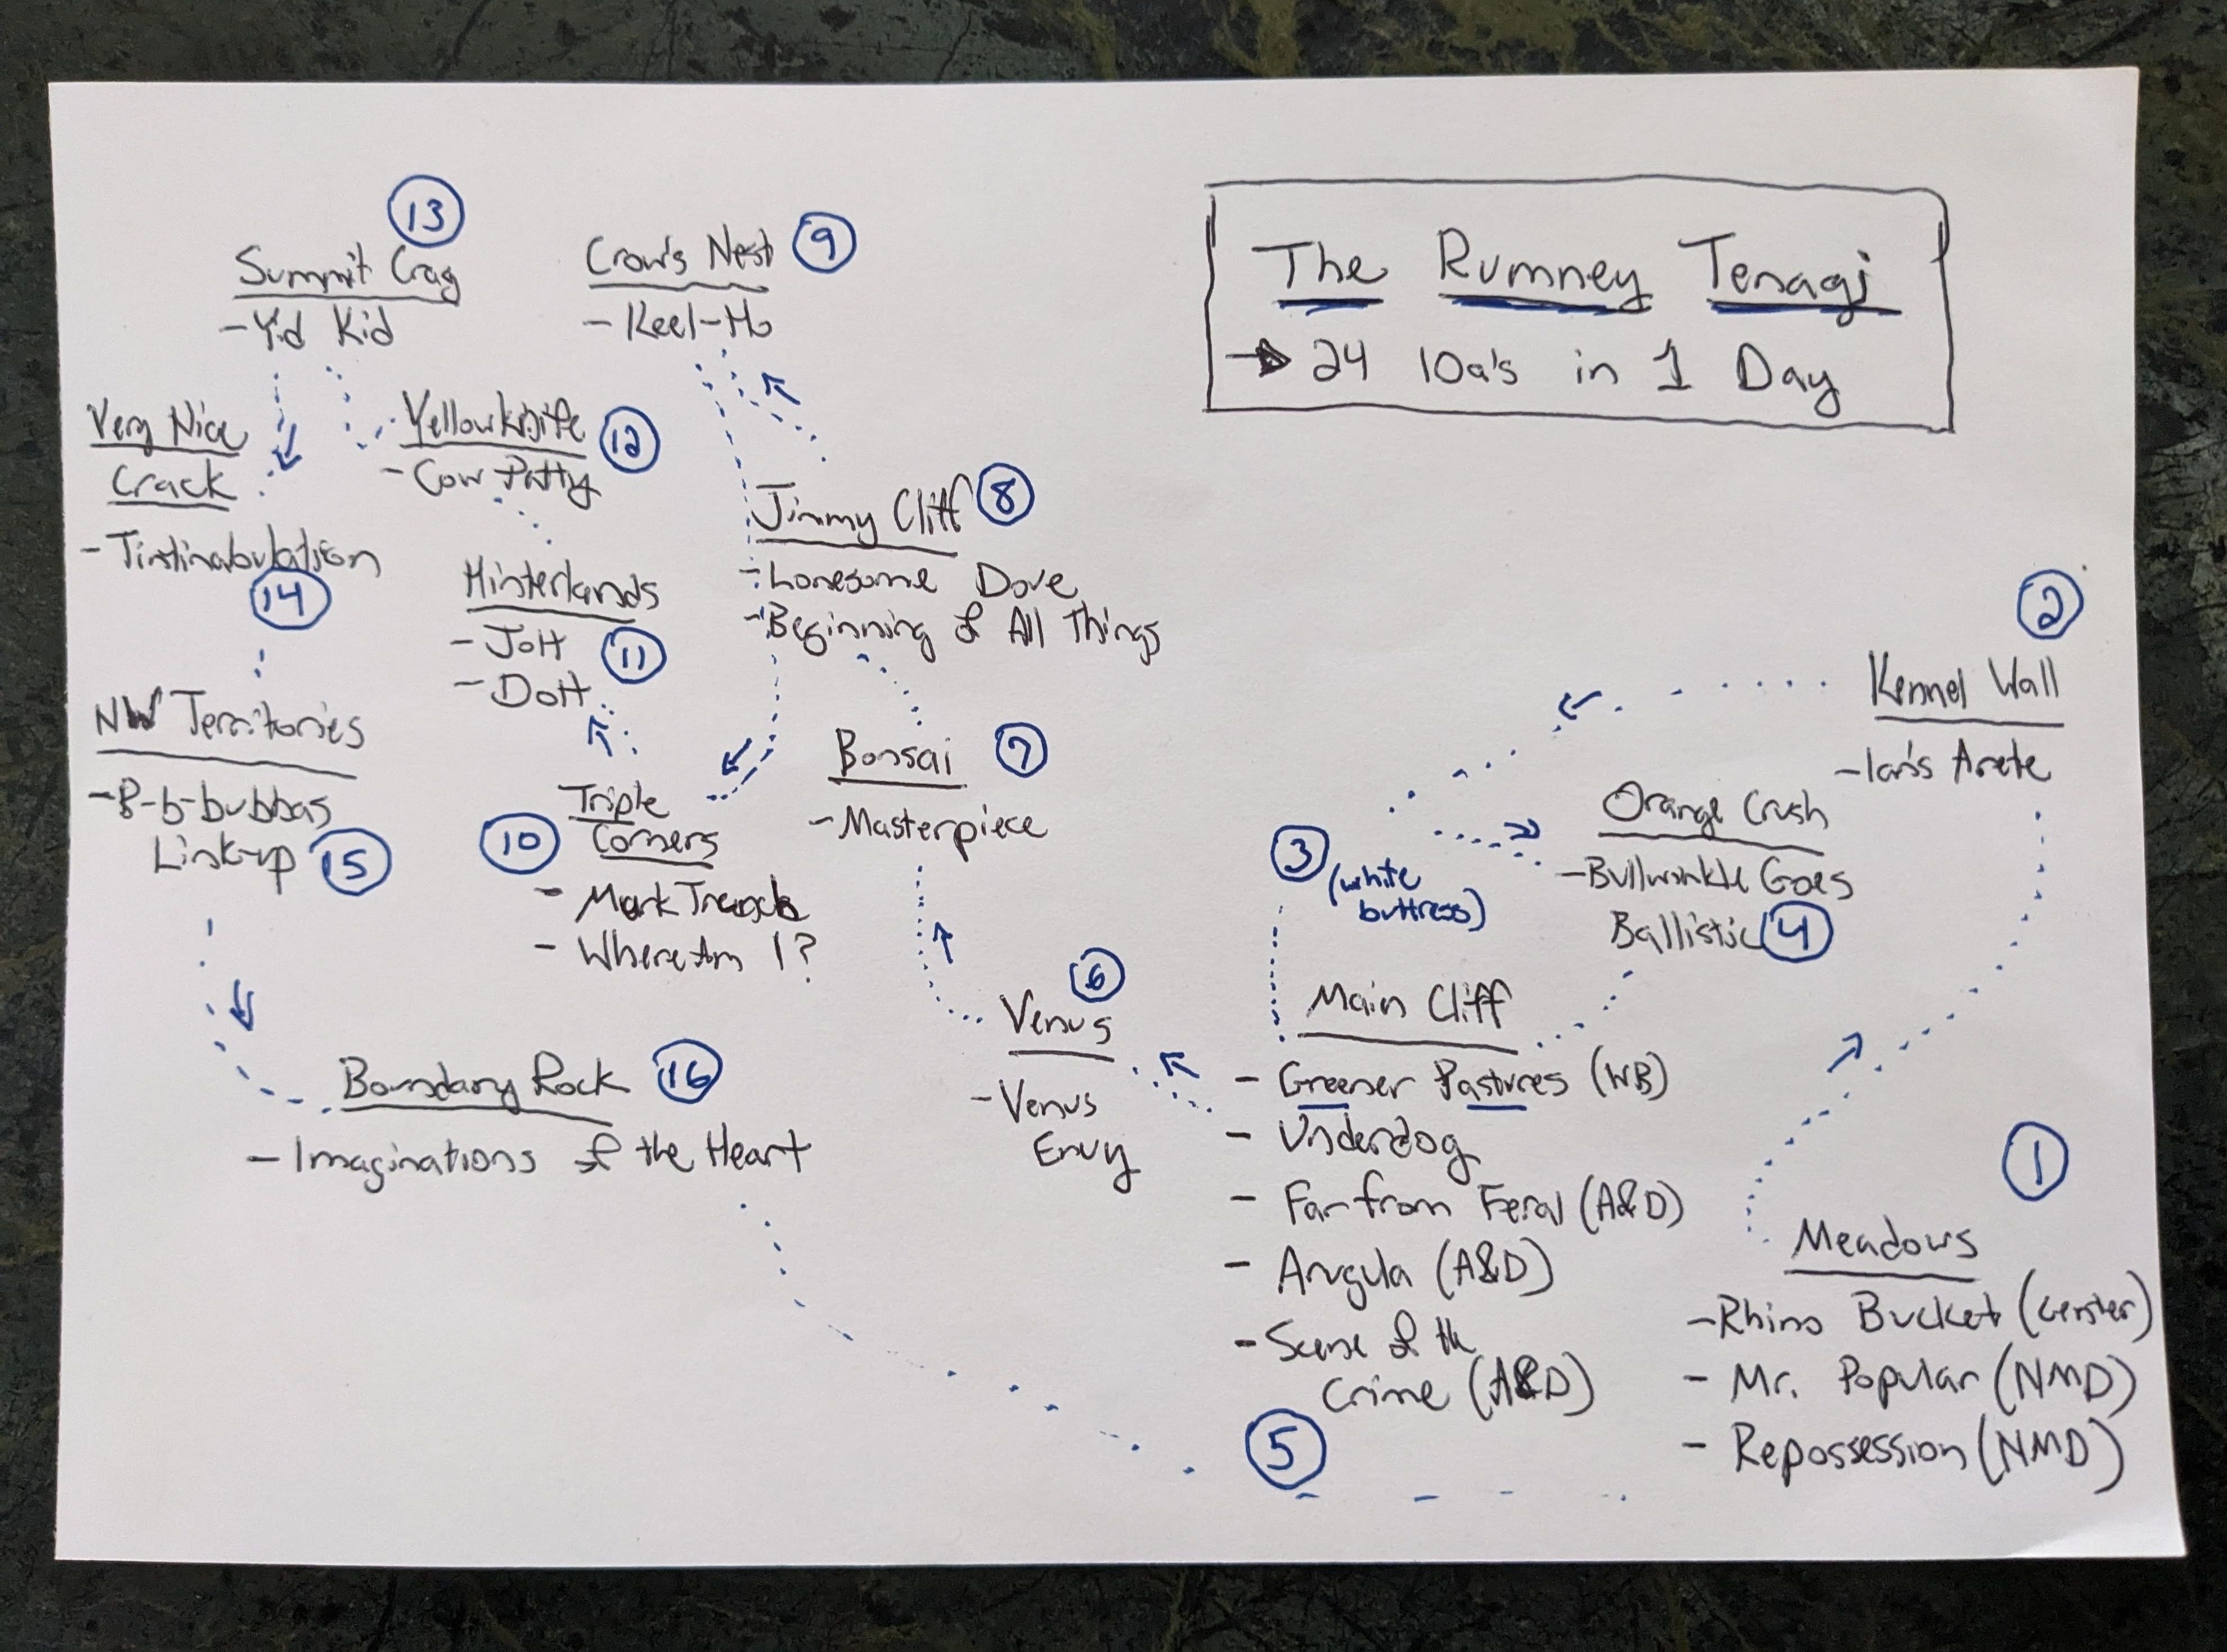 The Rumney Tenagi
→ 24 10a's in 1 Day
13
Summit Crag
- Yid Kid
Crow's Nest 9
- Keel-Ho
Very Nice
Crack
- Tintinabulation
14
Yellowknife 12
- Cow Patty
Jimmy Cliff 8
- Lonesome Dove
- Beginning of All Things
Hinterlands
- Jott 11
- Dott
NW Territories
- B-b-bubbas
Link-up 15
Triple
10 Corners
- Mark
- Where Am I?
Bonsai 7
- Masterpiece
2
Kennel Wall
- Ian's Arete
3 (white
buttress)
Orange Crush
- Bullwinkle Goes
Ballistic 4
6
Venus
- Venus
Envy
Main Cliff
- Greener Pastures (WB)
- Underdog
- Far from Feral (A&D)
- Arugula (A&D)
- Scene of the
Crime (A&D)
5
Boundary Rock 16
- Imaginations of the Heart
1
Meadows
- Rhino Bucket (Center)
- Mr. Popular (NMD)
- Repossession (NMD)